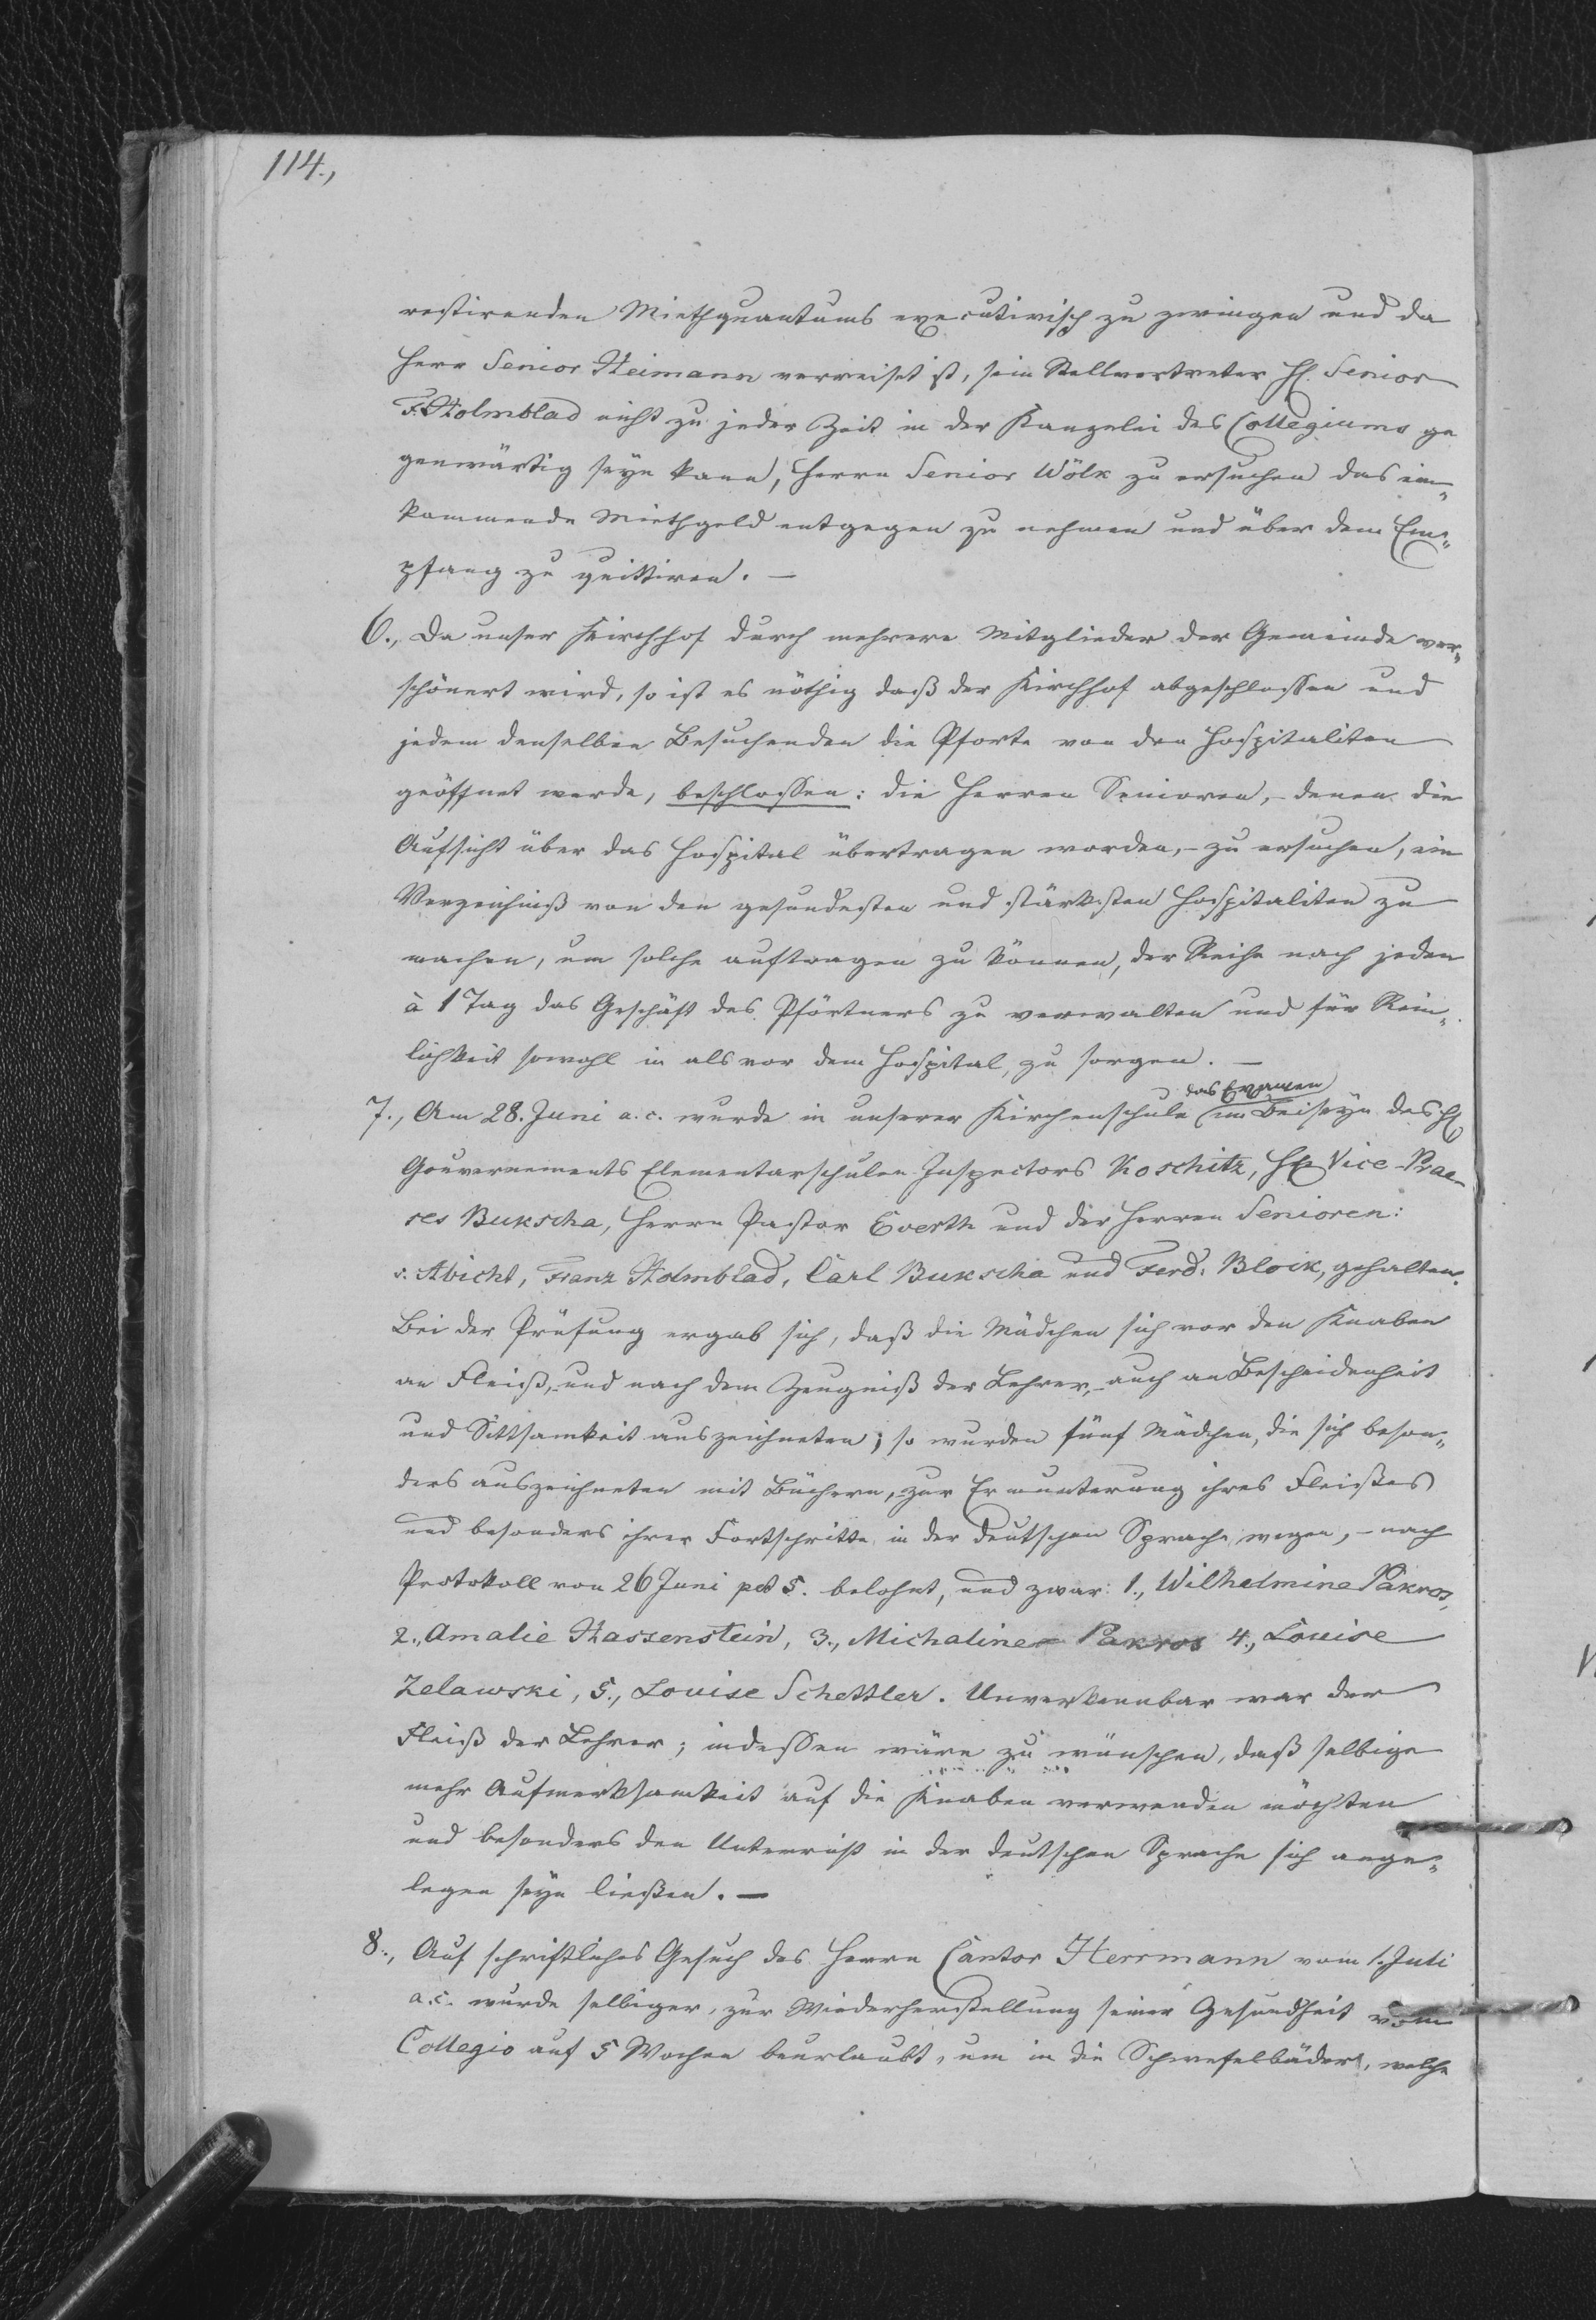 114.,
restirenden Miethquantums executivisch zu zwingen und da
Herr Senior Heimann verreiset ist, sein Stellvertreter H. Senior
F. Holmblad nicht zu jeder Zeit in der Kanzelei des Collegiums ge
genwärtig seyn kann, Herrn Senior Wölk zu ersuchen das ein„
kommende Miethgeld entgegen zu nehmen und über dem Em„
pfang zu quittiren. —
6., Da unser Kirchhof durch mehrere Mitglieder der Gemeinde ver„
schönert wird, so ist es nöthig daß der Kirchhof abgeschlossen und
jedem denselben Besuchenden die Pforte von den Hospitaliten
geöffnet werde, beschlossen: die Herren Senioren, – denen die
Aufsicht über das Hospital übertragen worden, – zu ersuchen, ein
Verzeichniß von den gesundesten und stärksten Hospitaliten zu
machen, um solche auftragen zu können, der Reihe nach jeden
à 1 Tag das Geschäft des Pförtners zu verwalten und für Rein„
lichkeit sowohl in als vor dem Hospital, zu sorgen. —
das Examen
7., Am 28. Juni a. c. wurde in unserer Kirchenschule im Beiseyn des H
Gouvernements Elementarschulen Inspectors Koschitz, H Vice-Prae-
ses Bukscha, Herrn Pastor Everth und der Herren Senioren:
v. Abicht, Franz Holmblad, Carl Bukscha und Ferd. Bloik, gehalten.
Bei der Prüfung ergab sich, daß die Mädchen sich vor den Knaben
an Fleiß, – und nach dem Zeugniß der Lehrer, – auch an Bescheidenheit
und Sittsamkeit auszeichneten; so wurden fünf Mädchen, die sich beson„
ders auszeichneten mit Büchern, – zur Ermunterung ihres Fleißes
und besonders ihrer Fortschritte in der deutschen Sprache wegen, – nach
Protokoll von 26 Juni pct 5. belohnt, und zwar: 1., Wilhelmine Pakros,
2., Amalie Hassenstein, 3., Michaline Pakros 4., Louise
Zelawski, 5., Louise Schettler. Unverkennbar war der
Fleiß der Lehrer; indessen wäre zu wünschen, daß selbige
mehr Aufmerksamkeit auf die Knaben verwenden möchten
und besonders den Unterricht in der deutschen Sprache sich ange„
legen seyn ließen. —
8., Auf schriftliches Gesuch des Herrn Cantor Herrmann vom 1. Juli
a. c. wurde selbiger, zur Wiederherstellung seiner Gesundheit vom
Collegio auf 5 Wochen beurlaubt, um in die Schwefelbäder, welche